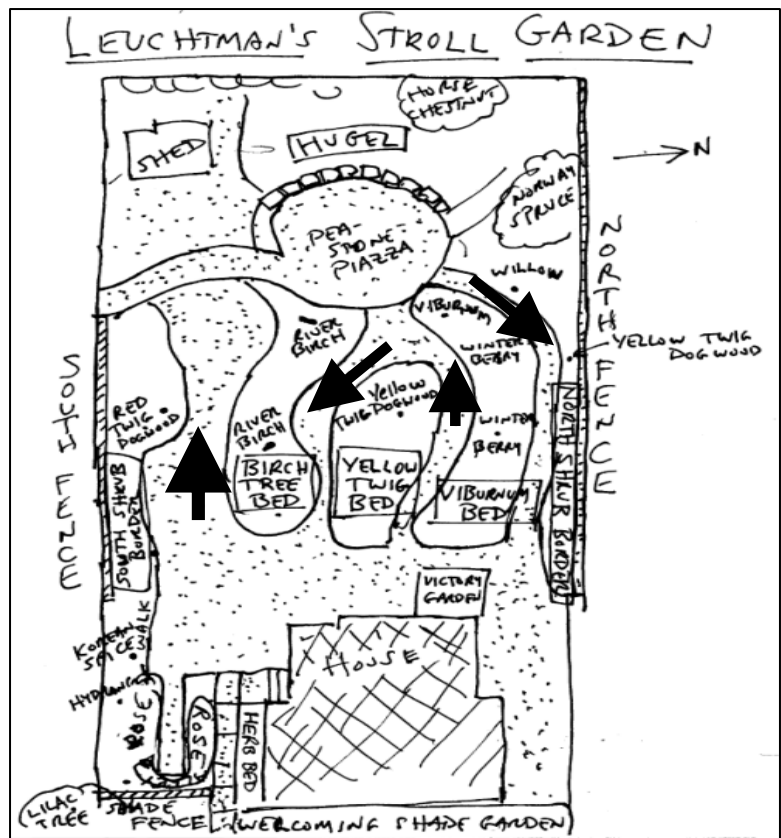 LEUCHTMAN'S STROLL GARDEN
HORSE
CHESTNUT
SHED
HUGEL
N
NORWAY
SPRUCE
PEA-
STONE
PIAZZA
WILLOW
VIBURNUM
RIVER
BIRCH
WINTER
BERRY
YELLOW TWIG
DOGWOOD
NORTH FENCE
SOUTH FENCE
RED
TWIG
DOGWOOD
Yellow
TWIG DOGWOOD
RIVER
BIRCH
WINTER
BERRY
BIRCH
TREE
BED
YELLOW
TWIG
BED
VIBURNUM
BED
NORTH SHRUB BORDER
SOUTH SHRUB
BORDER
VICTORY
GARDEN
KOREAN
SPICE
WALK
HOUSE
ROSE
ROSE
HERB BED
LILAC
TREE
SHADE
FENCE
WELCOMING SHADE GARDEN